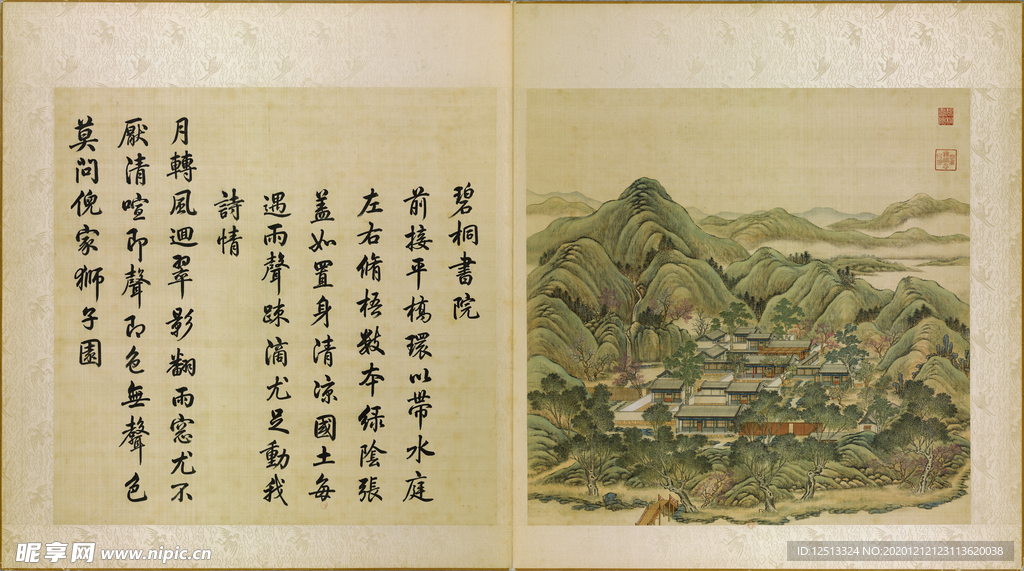 碧桐書院
前接平橋環以帶水庭
左右脩梧數本綠陰張
葢如置身清涼國土每
遇雨聲疎滴尤足動我
詩情
月轉風迴翠影翻雨窓尤不
厭清喧即聲即色無聲色
莫問倪家獅子園
昵享网 www.nipic.cn
ID:12513324 NO:20201212123113620038